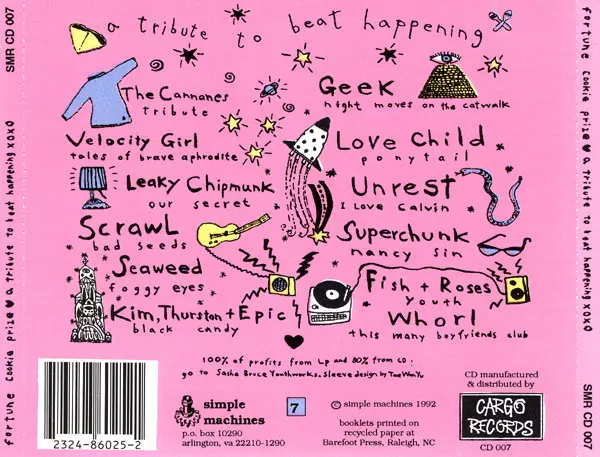 SMR CD 007
fortune cookie prize ♥ a tribute to beat happening xoxo
a tribute to beat happening
The Cannanes
tribute
Velocity Girl
tales of brave aphrodite
Leaky Chipmunk
our secret
Scrawl
bad seeds
Seaweed
foggy eyes
Kim, Thurston + Epic
black candy
Geek
night moves on the catwalk
Love Child
ponytail
Unrest
I Love Calvin
Superchunk
nancy sin
Fish + Roses
youth
Whorl
this many boyfriends club
100% of profits from Lp and 80% from CD:
go to Sasha Bruce Youthworks. Sleeve design by Tae Won Yu
2324-86025-2
simple
machines
p.o. box 10290
arlington, va 22210-1290
7
© simple machines 1992
booklets printed on
recycled paper at
Barefoot Press, Raleigh, NC
CD manufactured
& distributed by
CARGO
RECORDS
CD 007
fortune cookie prize ♥ a tribute to beat happening xoxo
SMR CD 007